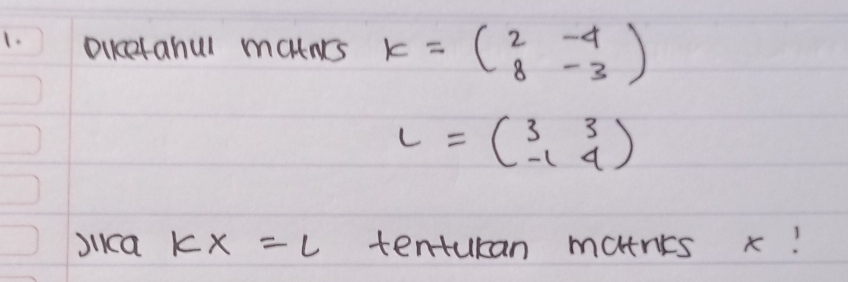 1. Diketahui matriks K = ( 2 -4
8 -3 )
L = ( 3 3
-1 4 )
Jika KX = L tentukan matriks X !